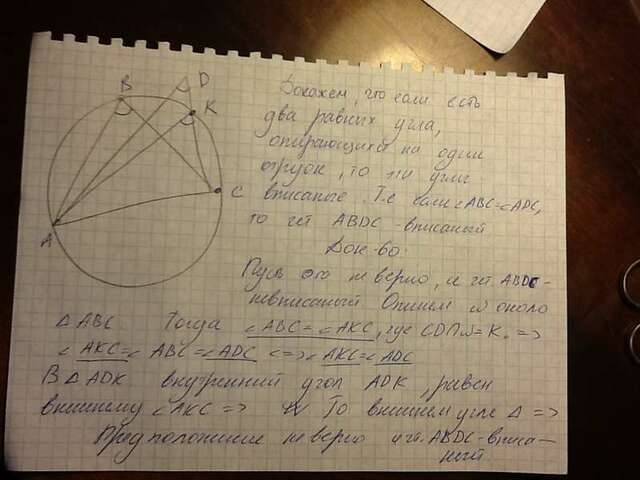 B
D
K
C
A
Докажем, что если есть
два равных угла,
опирающихся на один
отрезок, то эти углы
вписаные. Т.е если ∠ABC=∠ADC,
то чет ABDC - вписаный
Док-во:
Пусть это не верно, и чет. ABDC-
невписаный. Опишем ω около
△ABC. Тогда ∠ABC=∠AKC, где CD∩ω=K. =>
∠AKC=∠ABC=∠ADC <=> ∠AKC=∠ADC
В △ADK внутренний угол ADK, равен
внешнему ∠AKC => По внешнем угле △ =>
Предположение не верно и чет. ABDC - вписа-
ный